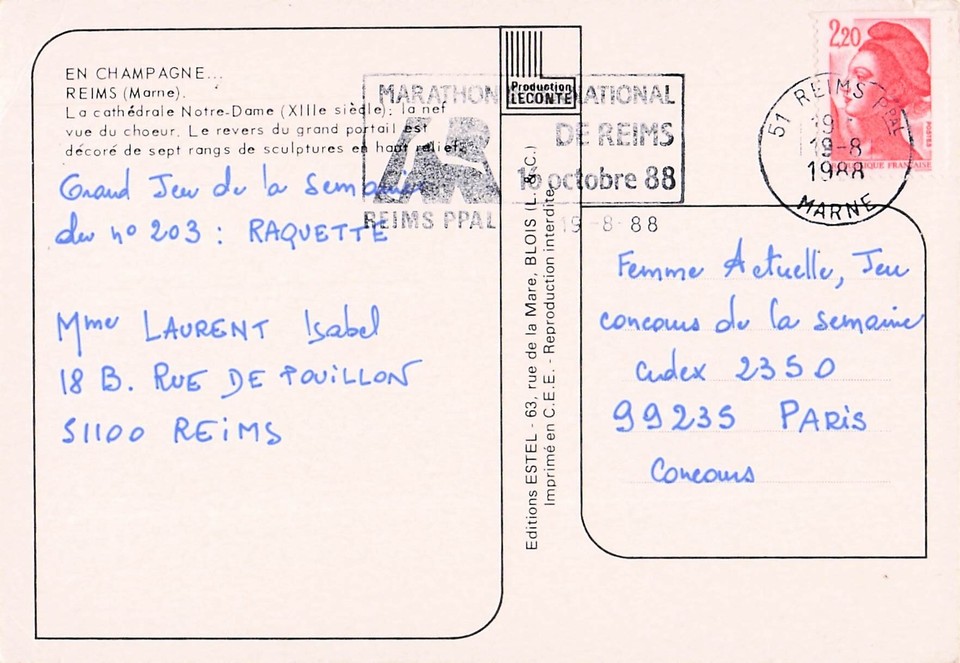 EN CHAMPAGNE...
REIMS (Marne).
La cathédrale Notre-Dame (XIIIe siècle) : la nef
vue du choeur. Le revers du grand portail est
décoré de sept rangs de sculptures en haut relief.
Grand Jeu de la semaine
du nº 203 : RAQUETTE
Mme LAURENT Isabel
18 B. RUE DE POUILLON
51100 REIMS
Production
LECONTE
MARATHON NATIONAL
DE REIMS
16 octobre 88
REIMS PPAL
19-8-88
Editions ESTEL - 63, rue de la Mare, BLOIS (L. & C.)
Imprimé en C.E.E. - Reproduction interdite
2,20
POSTES
FRANÇAISE
51 REIMS PPAL
19-8
1988
MARNE
Femme Actuelle, Jeu
concours de la semaine
cedex 2350
99235 PARIS
Concours